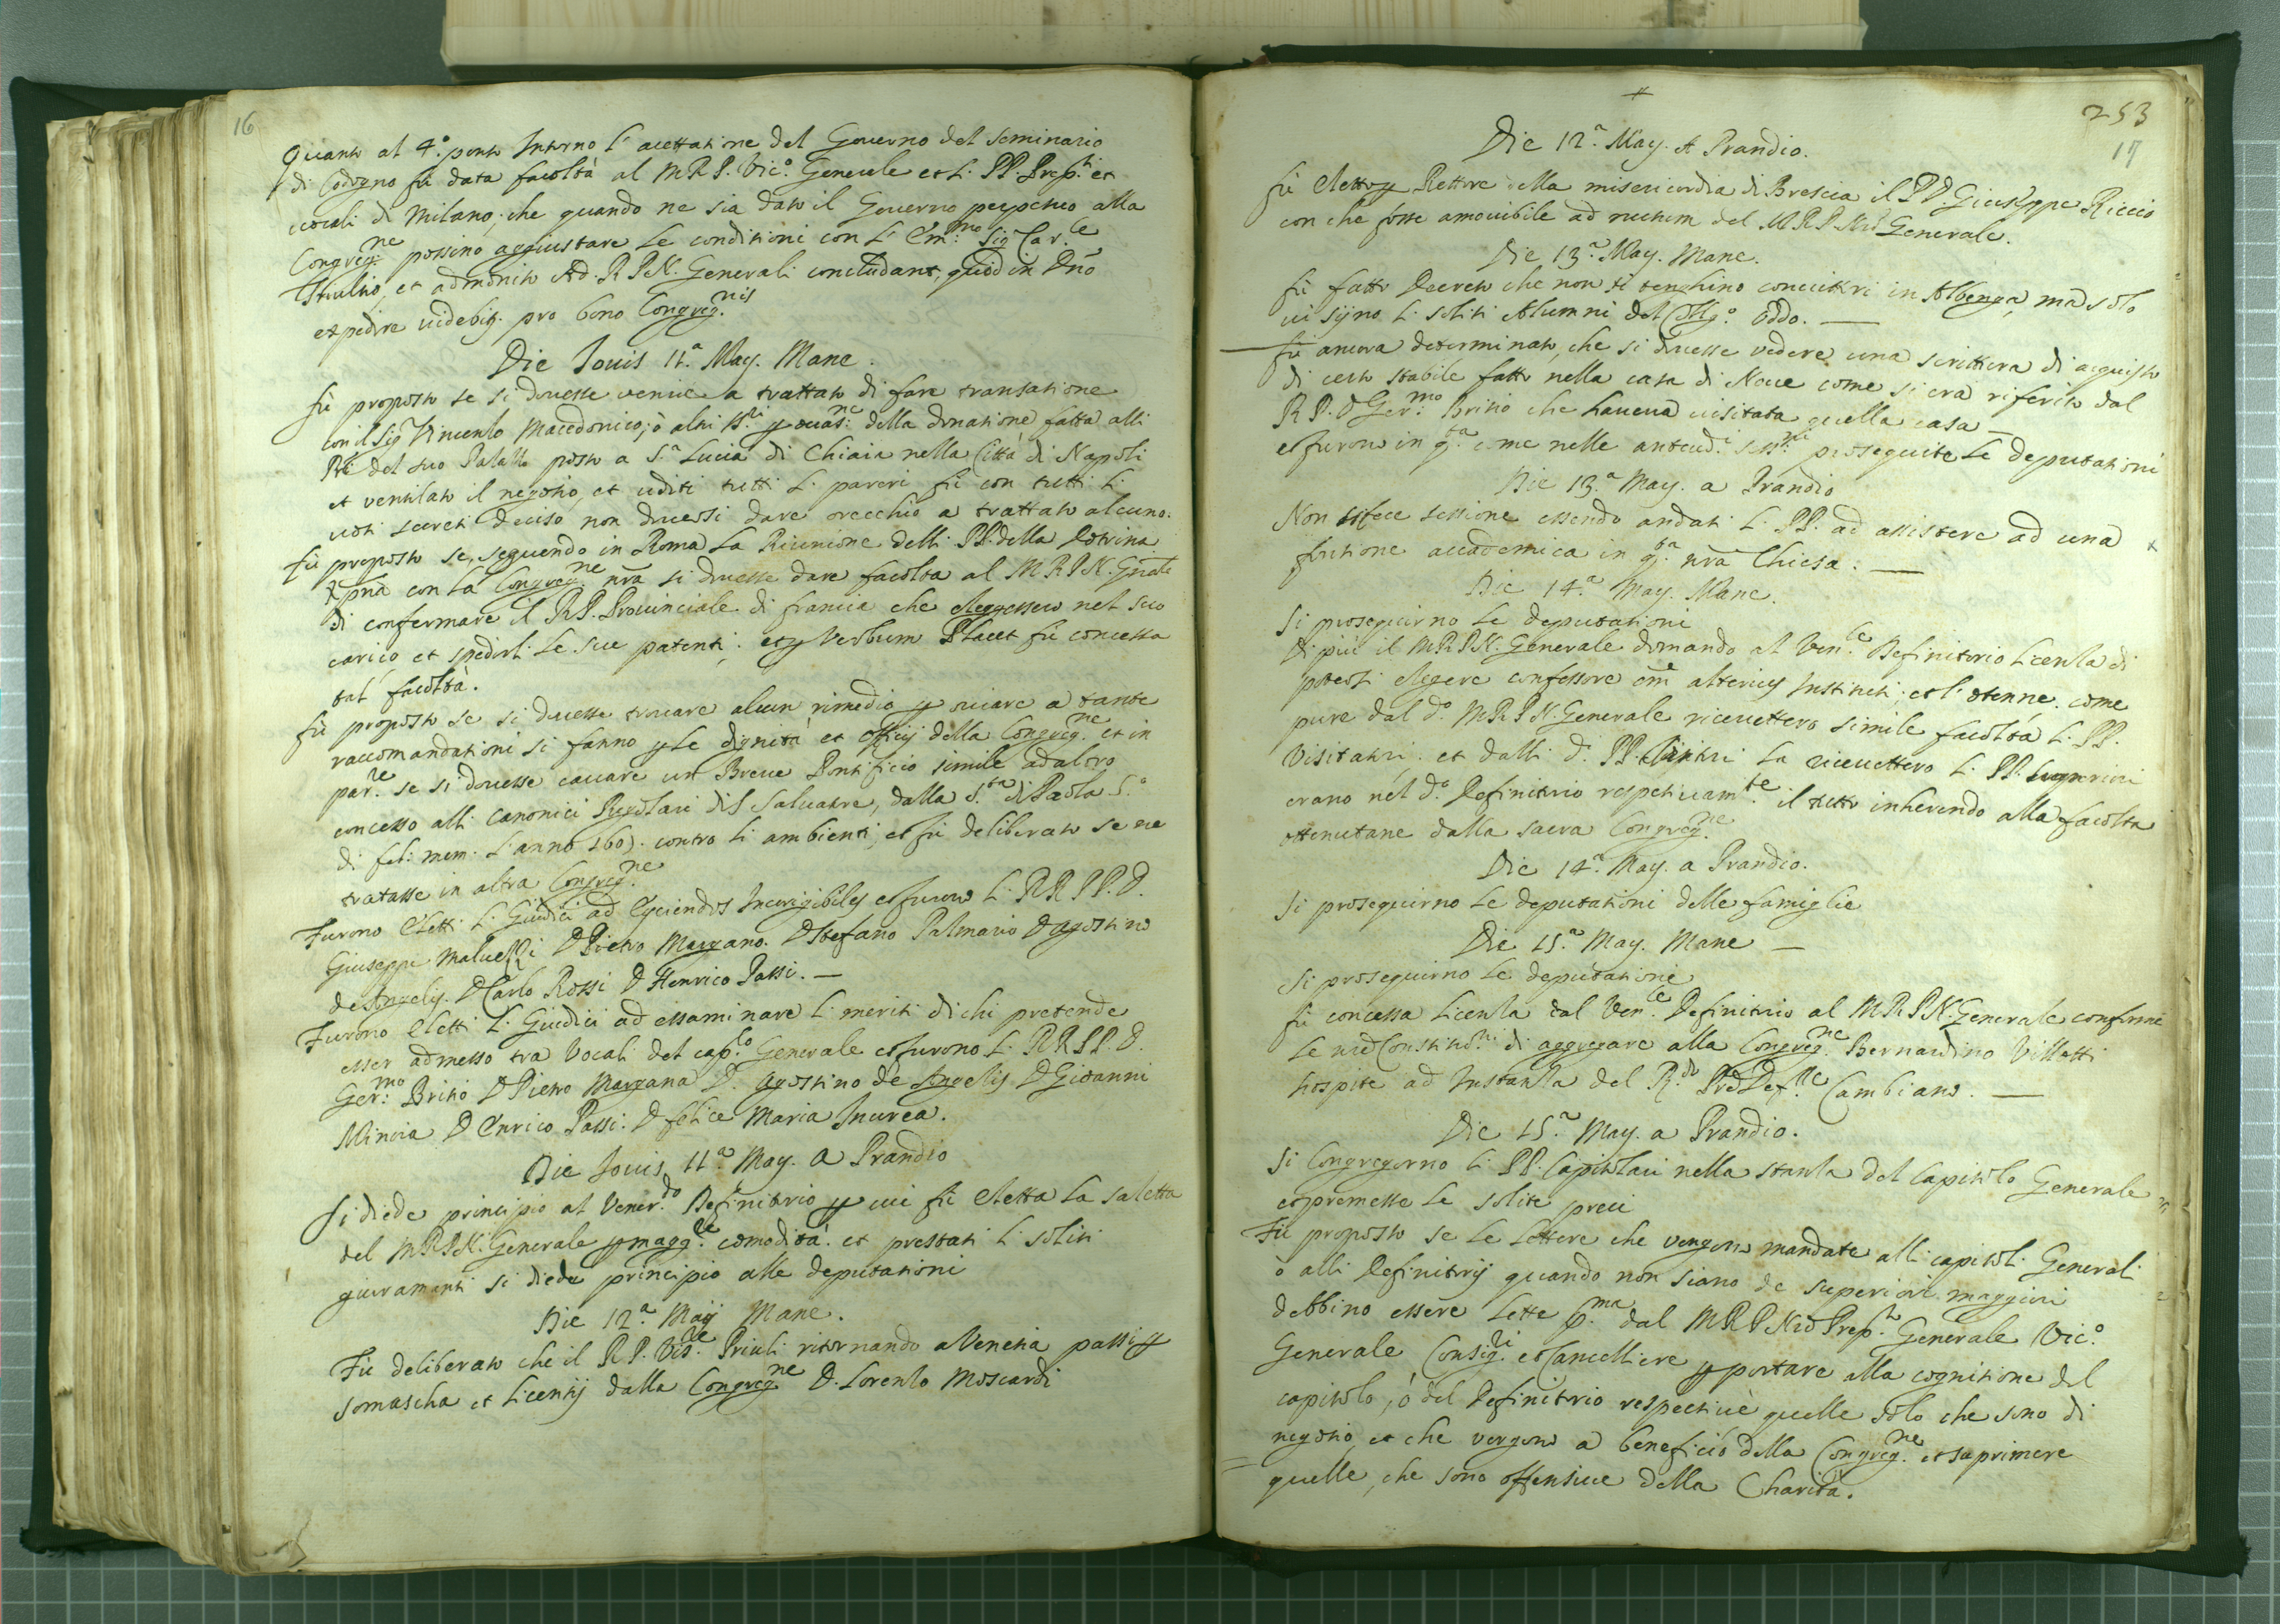 16
Quanto al 4.º ponto Intorno l'acettatione del Governo del seminario
di Codogno fù data facoltà al M R P. Vic.º Generale et L. PP. Prep.ti et
vocali di Milano, che quando ne sia dato il Governo perpetuo alla
Congreg.ne possino aggiustare le conditioni con l' Em.mo Sig Car.le
et admonito Ad. R P N. Generali concludant, quod in Dño
expedire videbit. pro bono Congreg.nis
Die Jouis 11.a May. Mane.
fù proposto se si douesse venire a trattato di fare transatione
con il Sig.r Vincenzo Macedonico, ò altri della donatione fatta alli
PP. del suo Palazzo posto a S.a Lucia di Chiaia nella Città di Napoli
et ventilato il negotio, et uditi tutti L. pareri fù con tutti L.
uoti secreti deciso non douersi dare orecchio a trattato alcuno.
fù proposto se, seguendo in Roma la Riunione delli PP. della Dotrina
Xpna con la Congreg.ne nra si douesse dare facolta al M R P N. Gñale
di confermare il R P. Prouinciale di francia che eleggessero nel suo
carico et spedirli le sue patenti. et p Verbum Placet fù concessa
tal facoltà.
fù proposto se si douesse trouare alcun rimedio p ouiare a tante
raccomandationi si fanno p le dignità et officij della Congreg.ne et in
par.re se si douesse cauare un Breue Pontificio simile ad altro
concesso alli Canonici Regolari di S Saluatore, dalla S.ta di Paolo 5.º
di fel: mem. L'anno 160). contro li ambienti, et fù deliberato se ne
tratasse in altra Congreg.ne
Furono eletti L. Giudici ad Eyciendos Incorrigibiles et furono L. RR PP. D.
Giuseppe Maluezzi D Pietro Margano. D Stefano Palmario D Agostino
de Angelis. D Carlo Rossi D Henrico Passi. —
Furono eletti L. Giudici ad essaminare L. meriti di chi pretende
esser admesso tra Vocali del cap.lo Generale et furono L. RR PP. D.
Ger.mo Britio D Pietro Margana D. Agostino de Angelis D Giovanni
Mincia D Enrico Passi. D felice Maria Incurea.
Die Jouis 11.a May. A Prandio
Si diede principio al Vener.do Definitorio p cui fù eletta la saletta
del M R P N. Generale p magg.re comodità. et prestati L. soliti
giuramenti si diede principio alle deputationi
Die 12.a Maij Mane.
Fù deliberato che il R P. Vis.re Priuli ritornando a Venetia passi p
somascha et licentij dalla Congreg.ne D. Lorenzo Moscardi
253
17
Die 12.a May. A Prandio.
fù eletto p Rettore della misericordia di Brescia il P D. Giuseppe Riccio
con che fosse amouibile ad nutum del M R P Nrõ Generale.
Die 13.a May. Mane.
fù fatto Decreto che non si tenghino conuittori in Albenga, mà solo
ui sijno L. soliti Alumni del Collg.º Oddo. —
fù ancora determinato, che si douesse vedere una scrittura di acquisto
di certo stabile fatto nella casa di Noue come si era riferito dal
R P. D Ger.mo Britio che haueua uisitata quella casa —
et furono in q.ta come nelle anteced.i sess.ni proseguite le deputationi
Die 13.a May. a Prandio
Non si fece sessione essendo andati L. PP. ad assistere ad una
funtione accademica in q.ta nrã Chiesa. —
Die 14.a May. Mane.
Si proseguirno le deputationi
Di più il M R P N. Generale domandò al Ven.le Definitorio licenza di
potersi elegere confessore om̃e alterius Instituti, et l'otenne, come
pure dal d.º M R P N. Generale riceuettero simile facoltà L. PP.
Visitatori. et dalli d.i PP. la riceuettero L. PP. Superiori
erano nel d.º Definitorio respetiuam.te il tutto inherendo alla facolta
ottenutane dalla sacra Congreg.ne
Die 14.a May. a Prandio.
Si proseguirno le deputationi delle famiglie
Die 15.a May. Mane —
Si proseguirno le deputationi
fù concessa licenza dal Ven.le Definitorio al M R P N. Generale conforme
le nrẽ Constitut.ni di aggregare alla Congreg.ne Bernardino Villetti
hospite ad Instanza del R.do Cambiano. —
Die 15.a May. a Prandio.
Si Congregorno L. PP. Capitolari nella stanza del Capitolo Generale
et premesse le solite preci
Fù proposto se le lettere che vengono mandate alli capitoli Generali
o alli Definitorij quando non siano de superiori maggiori
debbino essere lette p.ma dal M R P Nrõ Prep.to Generale Vic.º
Generale Consig.ri et Cancelliere p portare alla cognitione del
capitolo, ò del Definitorio respectiuè quelle solo che sono di
negotio et che vergono a beneficio della Congreg.ne et saprimere
quelle, che sono offensiue della Charità.